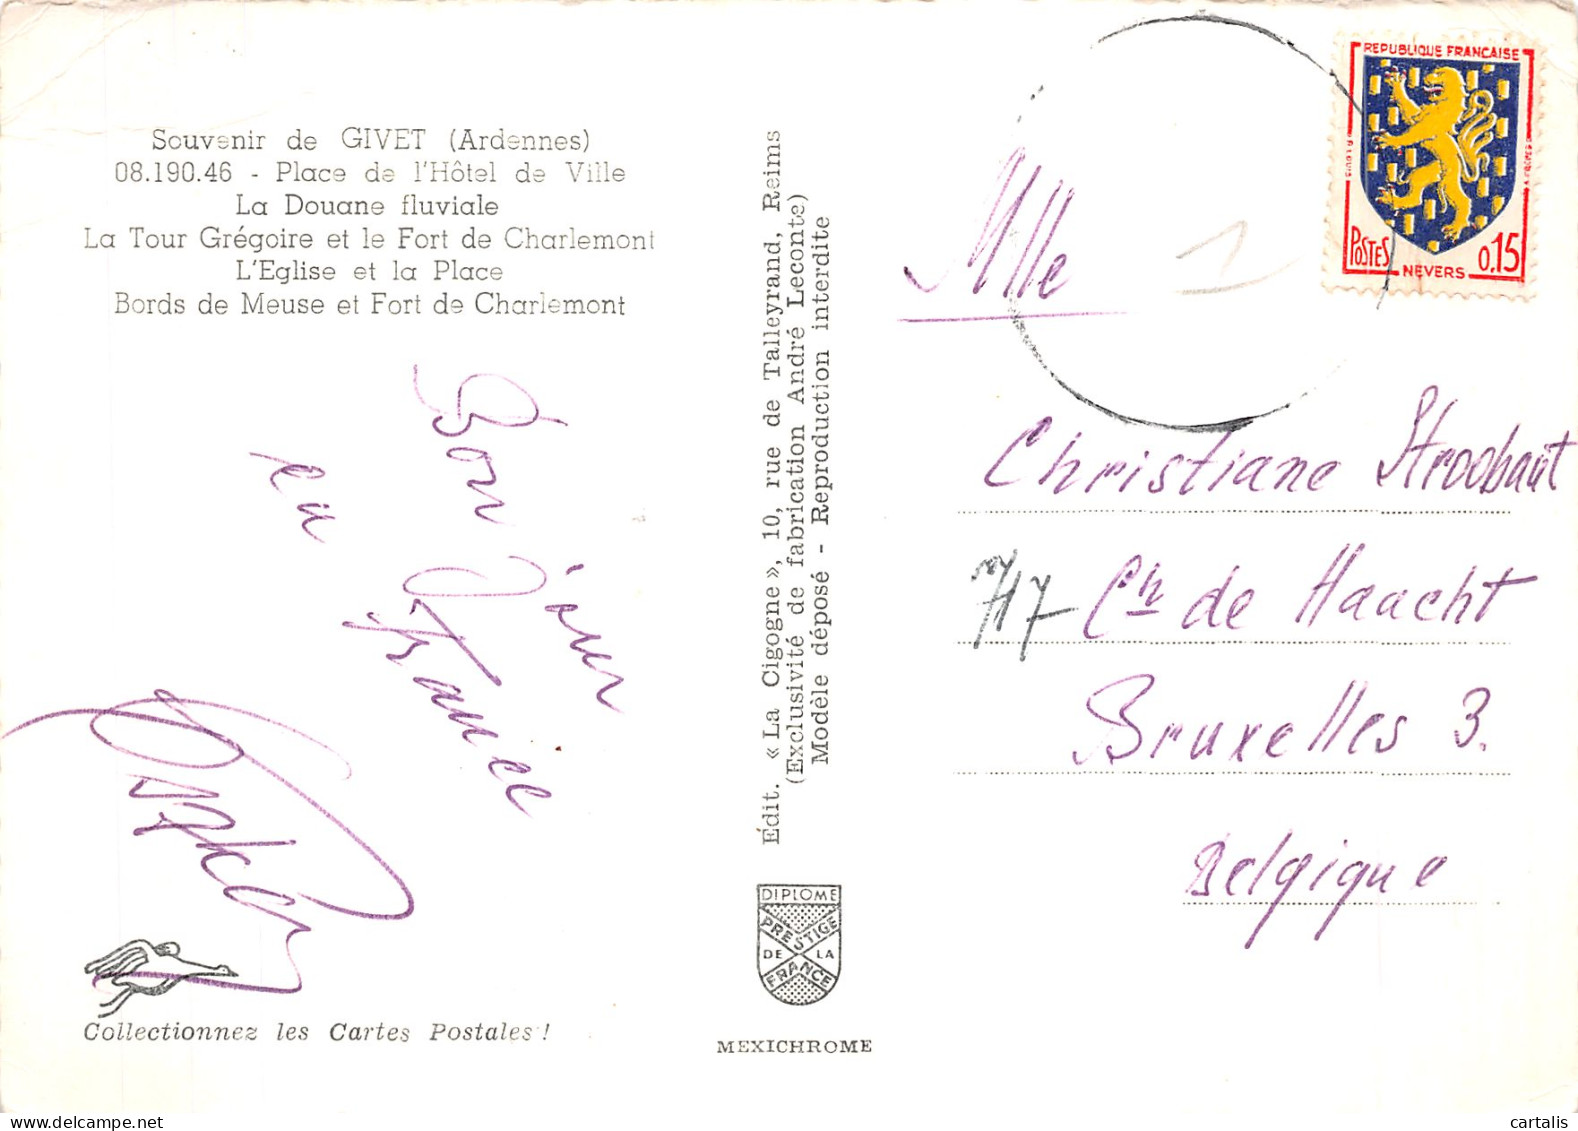 Souvenir de GIVET (Ardennes)
08.190.46 - Place de l'Hôtel de Ville
La Douane fluviale
La Tour Grégoire et le Fort de Charlemont
L'Eglise et la Place
Bords de Meuse et Fort de Charlemont
Bonjour
en France
Collectionnez les Cartes Postales !
Edit. « La Cigogne », 10, rue de Talleyrand, Reims
(Exclusivité de fabrication André Leconte)
Modèle déposé - Reproduction interdite
DIPLOME
PRESTIGE
DE LA
FRANCE
MEXICHROME
REPUBLIQUE FRANCAISE
POSTES 0,15
NEVERS
Mlle
Christiane Stroobant
717 Ch de Haacht
Bruxelles 3.
Belgique
delcampe.net
cartalis